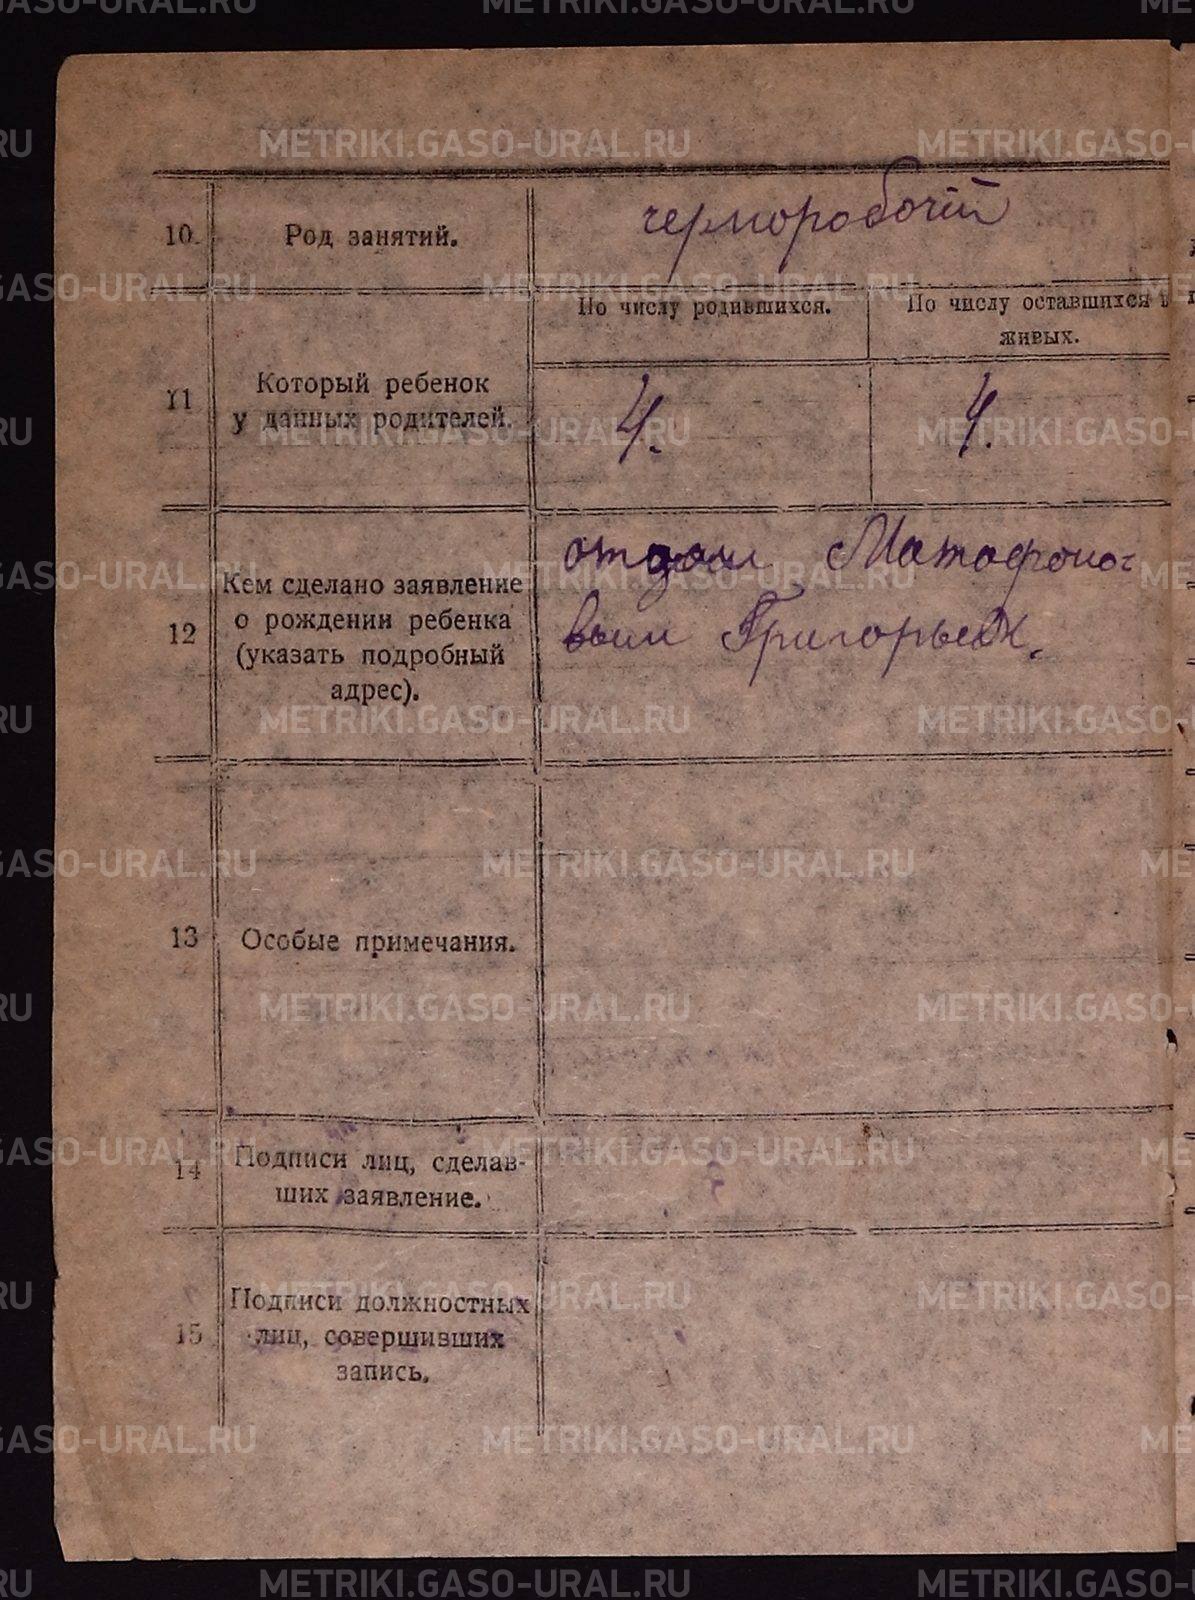 10. Род занятий. черноробочий
По числу родившихся. По числу оставшихся в
живых.
11 Который ребенок
у данных родителей. 4. 4.
12 Кем сделано заявление
о рождении ребенка
(указать подробный
адрес).
Матофоно-
вым Григорьем.
13 Особые примечания.
14 Подписи лиц, сделав-
ших заявление.
15 Подписи должностных
лиц, совершивших
запись.
METRIKI.GASO-URAL.RU